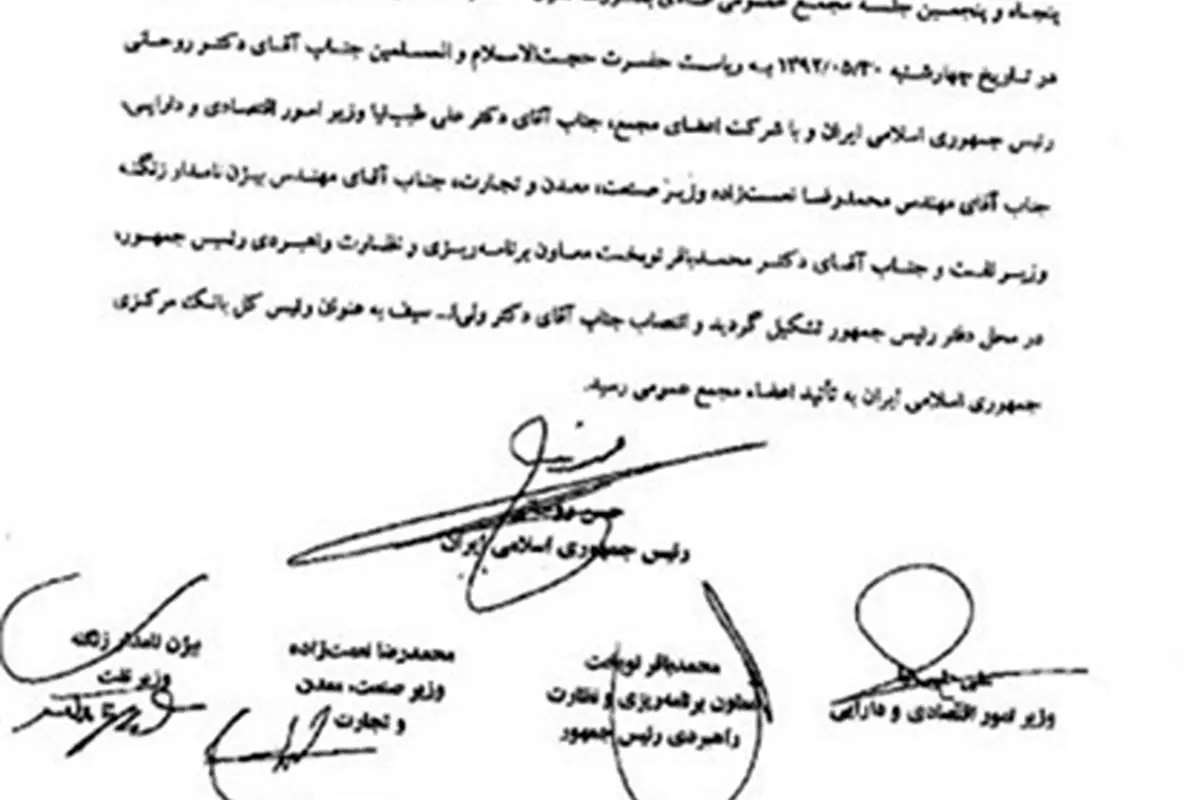 پنجاه و پنجمین جلسه مجمع عمومی
در تاریخ چهارشنبه ۱۳۹۲/۰۵/۳۰ به ریاست حضرت حجت‌الاسلام و المسلمین جناب آقای دکتر روحانی
رئیس جمهوری اسلامی ایران و با شرکت اعضای مجمع، جناب آقای دکتر علی طیب‌نیا وزیر امور اقتصادی و دارایی،
جناب آقای مهندس محمدرضا نعمت‌زاده وزیر صنعت، معدن و تجارت، جناب آقای مهندس بیژن نامدار زنگنه
وزیر نفت و جناب آقای دکتر محمدباقر نوبخت معاون برنامه‌ریزی و نظارت راهبردی رئیس جمهور،
در محل دفتر رئیس جمهور تشکیل گردید و انتصاب جناب آقای دکتر ولی‌ا... سیف به عنوان رئیس کل بانک مرکزی
جمهوری اسلامی ایران به تأئید اعضاء مجمع عمومی رسید.
حسن روحانی
رئیس جمهوری اسلامی ایران
علی طیب‌نیا
وزیر امور اقتصادی و دارایی
محمدباقر نوبخت
معاون برنامه‌ریزی و نظارت
راهبردی رئیس جمهور
محمدرضا نعمت‌زاده
وزیر صنعت، معدن
و تجارت
بیژن نامدار زنگنه
وزیر نفت